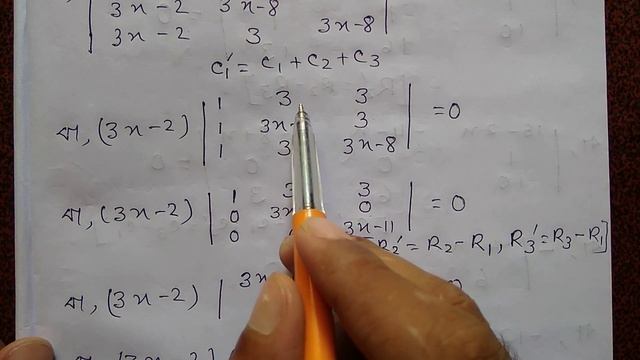 3x-2 3x-8
3x-2 3 3x-8
C₁′ = C₁ + C₂ + C₃
1 3 3
বা, (3x-2) 1 3x- 3 = 0
1 3 3x-8
1 3 3
বা, (3x-2) 0 3x 0 = 0
0 3x-11
R₂′ = R₂ - R₁, R₃′ = R₃ - R₁]
বা, (3x-2) | 3x